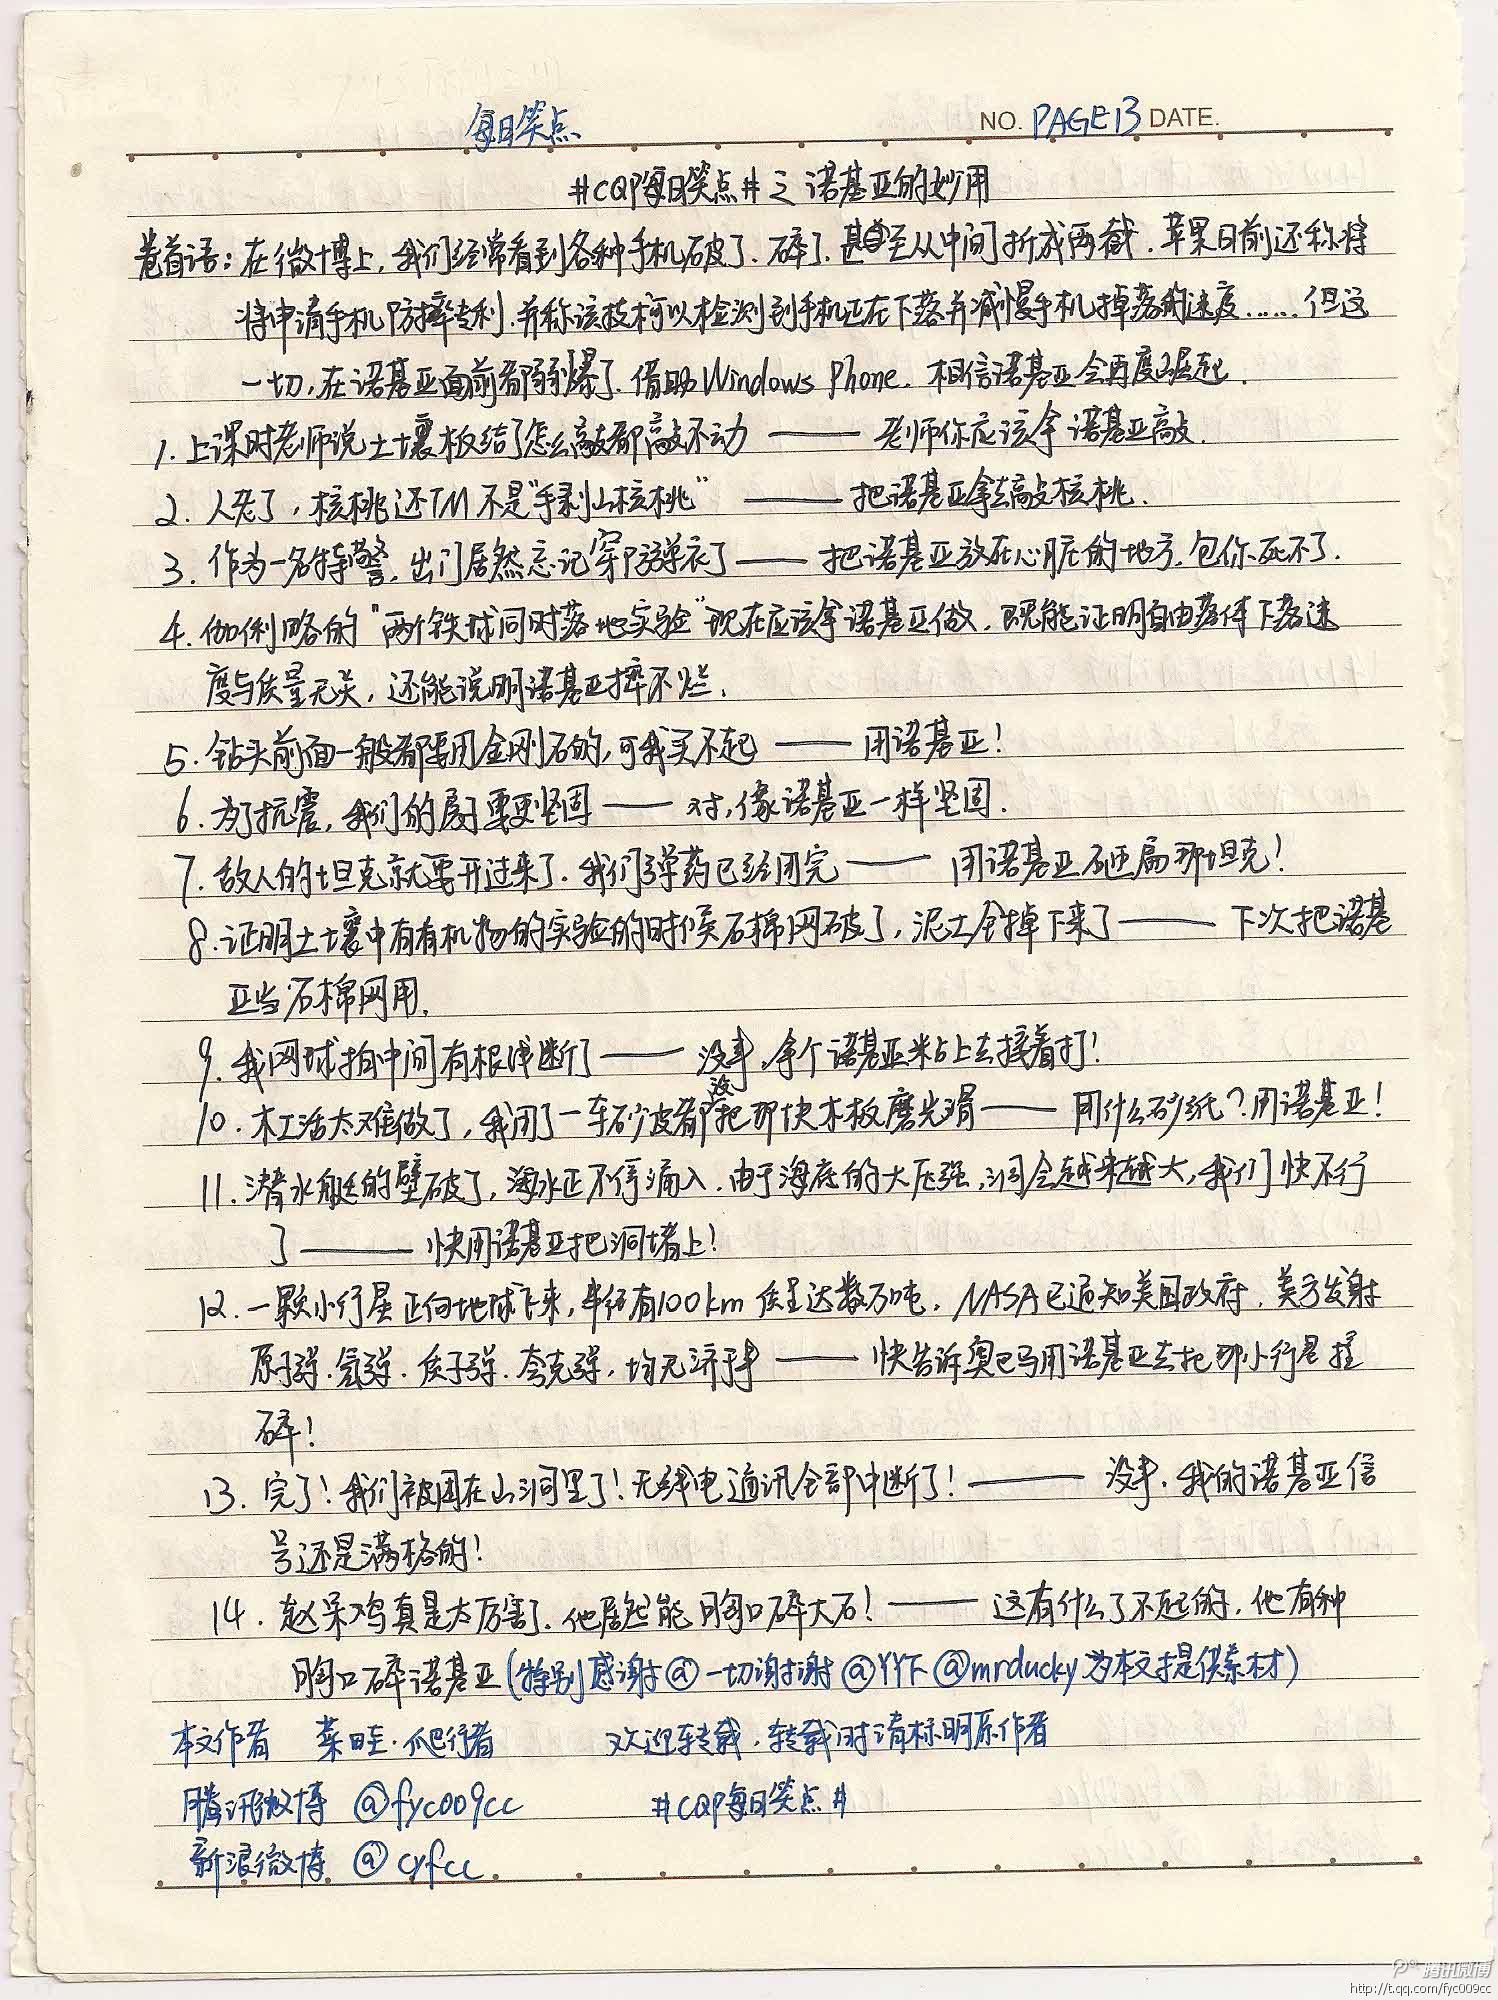 每日笑点
NO. PAGE13 DATE.
#CQP每日笑点#之诺基亚的妙用
卷首语:在微博上,我们经常看到各种手机破了、碎了、甚至从中间折成两截.苹果日前还称将
将申请手机防摔专利.并称该技术可以检测到手机正在下落并减慢手机掉落的速度……但这
一切,在诺基亚面前都弱爆了.借助Windows Phone.相信诺基亚会再度崛起.
1.上课时老师说土壤板结了怎么敲都敲不动——老师你应该拿诺基亚敲.
2.人老了,核桃还TM不是"手剥山核桃"——把诺基亚拿去敲核桃.
3.作为一名特警,出门居然忘记穿防弹衣了——把诺基亚放在心脏的地方,包你死不了.
4.伽利略的"两个铁球同时落地实验"现在应该拿诺基亚做.既能证明自由落体下落速
度与质量无关,还能说明诺基亚摔不烂.
5.钻头前面一般都要用金刚石的,可我买不起——用诺基亚!
6.为了抗震,我们的房子要更坚固——对,像诺基亚一样坚固.
7.敌人的坦克就要开过来了.我们弹药已经用完——用诺基亚砸扁那坦克!
8.证明土壤中有有机物的实验的时候石棉网破了,泥土全掉下来了——下次把诺基
亚当石棉网用.
9.我网球拍中间有根线断了——没事,拿个诺基亚粘上去接着打!
10.木工活太难做了,我用了一车砂皮都没把那块木板磨光滑——用什么砂纸?用诺基亚!
11.潜水艇的壁破了,海水正不停涌入.由于海底的大压强,洞会越来越大,我们快不行
了——快用诺基亚把洞堵上!
12.一颗小行星正向地球飞来,半径有100km质量达数万吨.NASA已通知美国政府.美方发射
原子弹.氢弹.质子弹.夸克弹.均无济于事——快告诉奥巴马用诺基亚去把那小行星撞
碎!
13.完了!我们被困在山洞里了!无线电通讯全部中断了!——没事.我的诺基亚信
号还是满格的!
14.赵呆鸡真是太厉害了.他居然能胸口碎大石!——这有什么了不起的.他有种
胸口碎诺基亚(特别感谢@一切谢谢 @YY下 @mrducky为本文提供素材)
本文作者 菜畦.爬行者 欢迎转载.转载时请标明原作者
腾讯微博 @fyc009cc #CQP每日笑点#
新浪微博 @cyfcc
腾讯微博
http://t.qq.com/fyc009cc